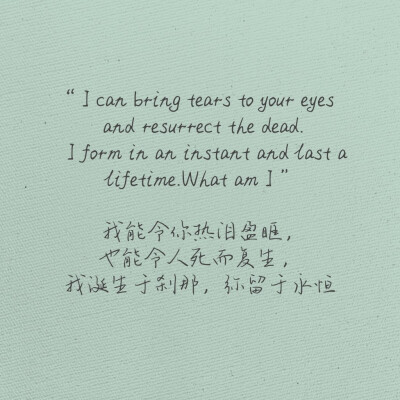 “ I can bring tears to your eyes
and resurrect the dead.
I form in an instant and last a
lifetime.What am I ”
我能令你热泪盈眶，
也能令人死而复生，
我诞生于刹那，弥留于永恒